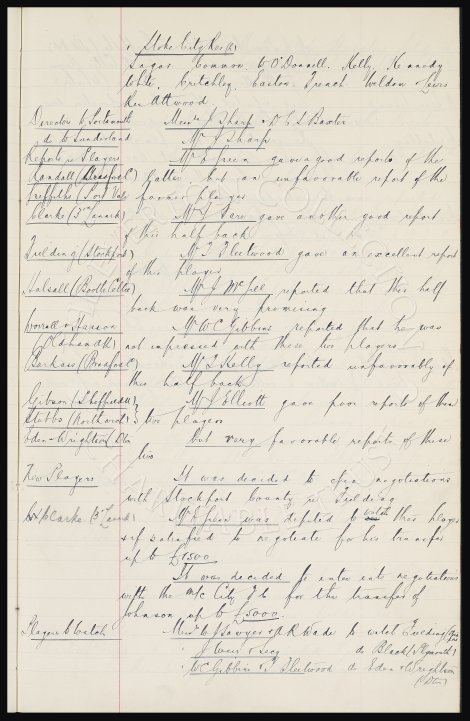 v Stoke City Res (A)
Sagar Common, W O'Donnell, Kelly, Kennedy
White, Critchley, Easton, French Weldon & Lewis
Res Attwood
Directors to Portsmouth Messrs J Sharp & D C S Baxter
do to Sunderland Mr J Sharp
Reports re Players Mr E Green gave a good report of the
Randall (Bradford C) latter but an unfavorable report of the
Griffiths (Port Vale) former player
Clarke (3rd Lanark) Mr gave another good report
of this half back
Fielding (Stockport) Mr T Fleetwood gave an excellent report
of this player
Halsall (Bootle Celtic) Mr J McGee reported that this half
back was very promising
Worrall & Hasson Mr W C Gibbins reported that he was
(Oldham Ath) not impressed with these two players
Barkass (Bradford C) Mr L Kelly reported unfavorably of
this half back
Gibson (Sheffield U) Mr J Elliott gave poor reports of these
Stubbs (Northwich) } two players
Eden & Wrightson (Dtn but very favorable reports of these
two
New Players It was decided to open negotiations
with Stockport County re Fielding
Clarke (3rd Lanark) Mr E Green was deputed to watch this player
& if satisfied to negotiate for his transfer
up to £1500
It was decided to enter into negotiations
with the M/c City F C for the transfer of
Johnson up to £5000
Players to Watch Messrs W J Sawyer & A R Wade to watch
J Weir & Secy do Black (Plymouth)
W C Gibbins & T Fleetwood do Eden & Wrightson
(Dtn)